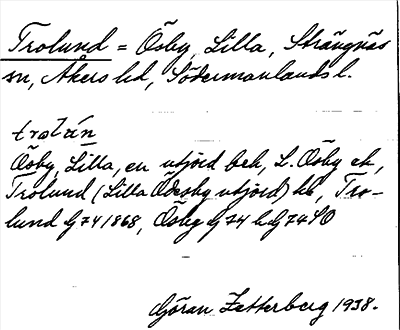 Trolund = Ösby, Lilla, Strängnäs
sn, Åkers hd, Södermanlands l.
trolún
Ösby, Lilla, en utjord beh, L. Ösby eh,
Trolund (Lilla Ödesby utjord) hb, Tro-
lund Gj 74 1868, Ösby Gj 74 h Gj 74 SO
Göran Zetterberg 1938.